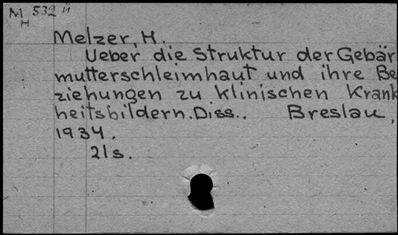 M 532 ü
H
Melzer, H.
Ueber die Struktur der Gebär
mutterschleimhaut und ihre Be
ziehungen zu klinischen Krank
heitsbildern. Diss.. Breslau,
1934.
21s.